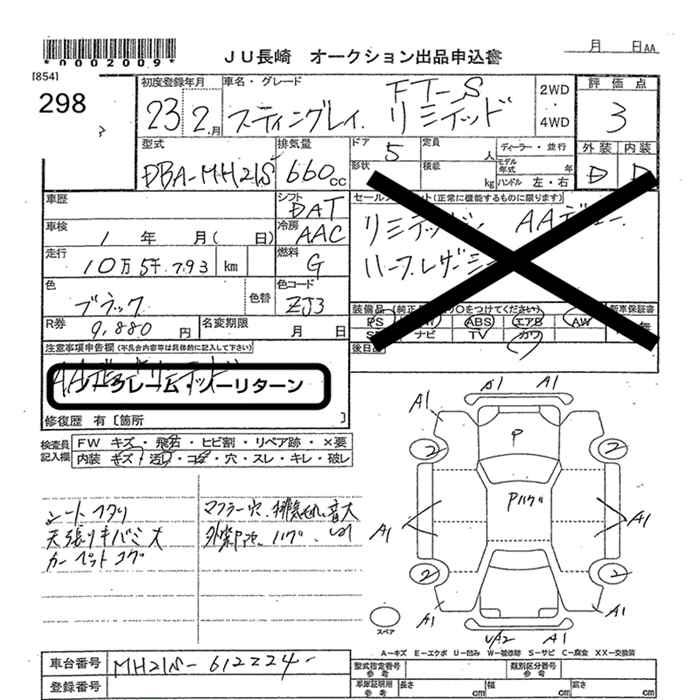 *0002009*
JU長崎 オークション出品申込書
月 日AA
[854]
298
初度登録年月
23年2月
車名・グレード
FT-S
スティングレイ. リミテッド
2WD
・
4WD
評価点
3
型式
DBA-MH21S
排気量
660cc
ドア
5
定員
人
形状
積載
kg
ディーラー・並行
モデル年式 年
ハンドル 左・右
外装 内装
D D
車歴
シフト
DAT
車検
1年 月( 日)
冷房
AAC
走行
10万5千793 km
燃料
G
色
ブラック
色替
色コード
ZJ3
R券
9,880 円
名変期限
月 日
セールスポイント(正常に機能するものに限ります)
リミテッド
AA
ハーフレザー
装備品
PS
ABS
エアB
AW
SR
ナビ
TV
カワ
新車保証書
後日品
注意事項申告欄(不具合内容等は具体的に記入して下さい)
ノークレーム・ノーリターン
修復歴 有〔箇所 〕
検査員記入欄
FW キズ・飛石・ヒビ割・リペア跡・×要
内装 キズ・汚レ・コゲ・穴・スレ・キレ・破レ
シートヘタリ
天張りキバミ大
カーペットコゲ
マフラー穴、排気もれ、音大
A1 A1
A1 A1
2 P 2
Pハゲ
A1 A1
2 2
A1 UA2 A1 A1
スペア
A-キズ E-エクボ U-凹み W-補修跡 S-サビ C-腐食 XX-交換済
車台番号
MH21S-612224-
登録番号
型式指定番号
参考
類別区分番号
参考
車庫証明用
参考
長さ cm
幅 cm
高さ cm